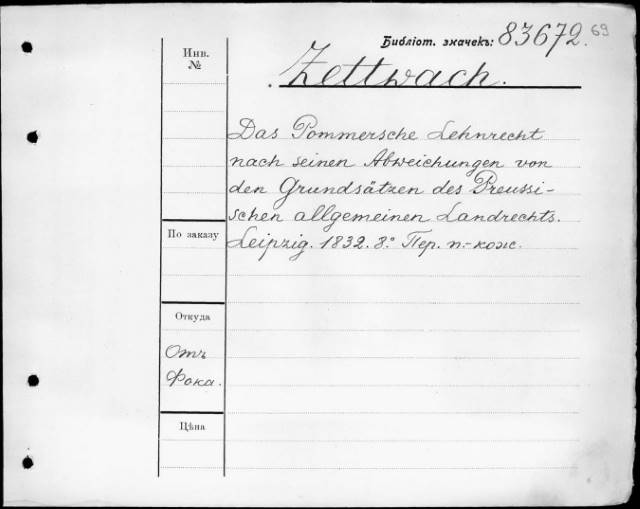 Библіот. значекъ: 83672. 69
Инв. №
Zettwach.
Das Pommersche Lehnrecht
nach seinen Abweichungen von
den Grundsätzen des Preussi-
schen allgemeinen Landrechts.
По заказу
Leipzig. 1832. 8.° Пер. п.-кож.
Откуда
Отъ
Фока.
Цѣна